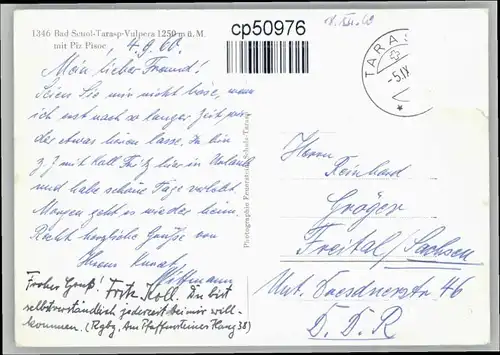 1346 Bad Scuol-Tarasp-Vulpera 1250 m ü. M.
mit Piz Pisoc
cp50976
TARAS
-5.IX
4.9.60.
Mein lieber Freund!
Seien Sie mir nicht böse, wenn
ich erst nach so langer Zeit wie-
der etwas hören lasse. Ich bin
z. Z. mit Koll. Fritz hier in Urlaub
und habe schöne Tage verlebt.
Morgen geht es wieder heim.
Recht herzliche Grüße von
Ihrem
Frohen Gruß! Fritz Koll. Du bist
selbstverständlich jederzeit bei mir will-
kommen. (Rgbg, Am Pfaffensteiner Hang 38)
Photographie Feuerstein, Schuls-Tarasp
Herrn
Reinhard
Gröger
Freital/Sachsen
Unt. Dresdnerstr 46
D. D. R